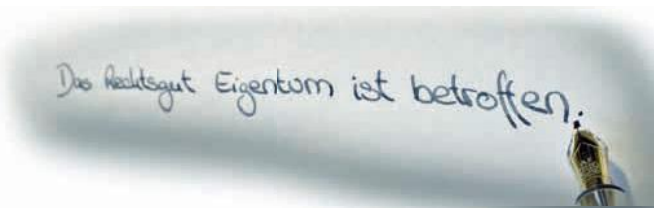 Das Rechtsgut Eigentum ist betroffen.